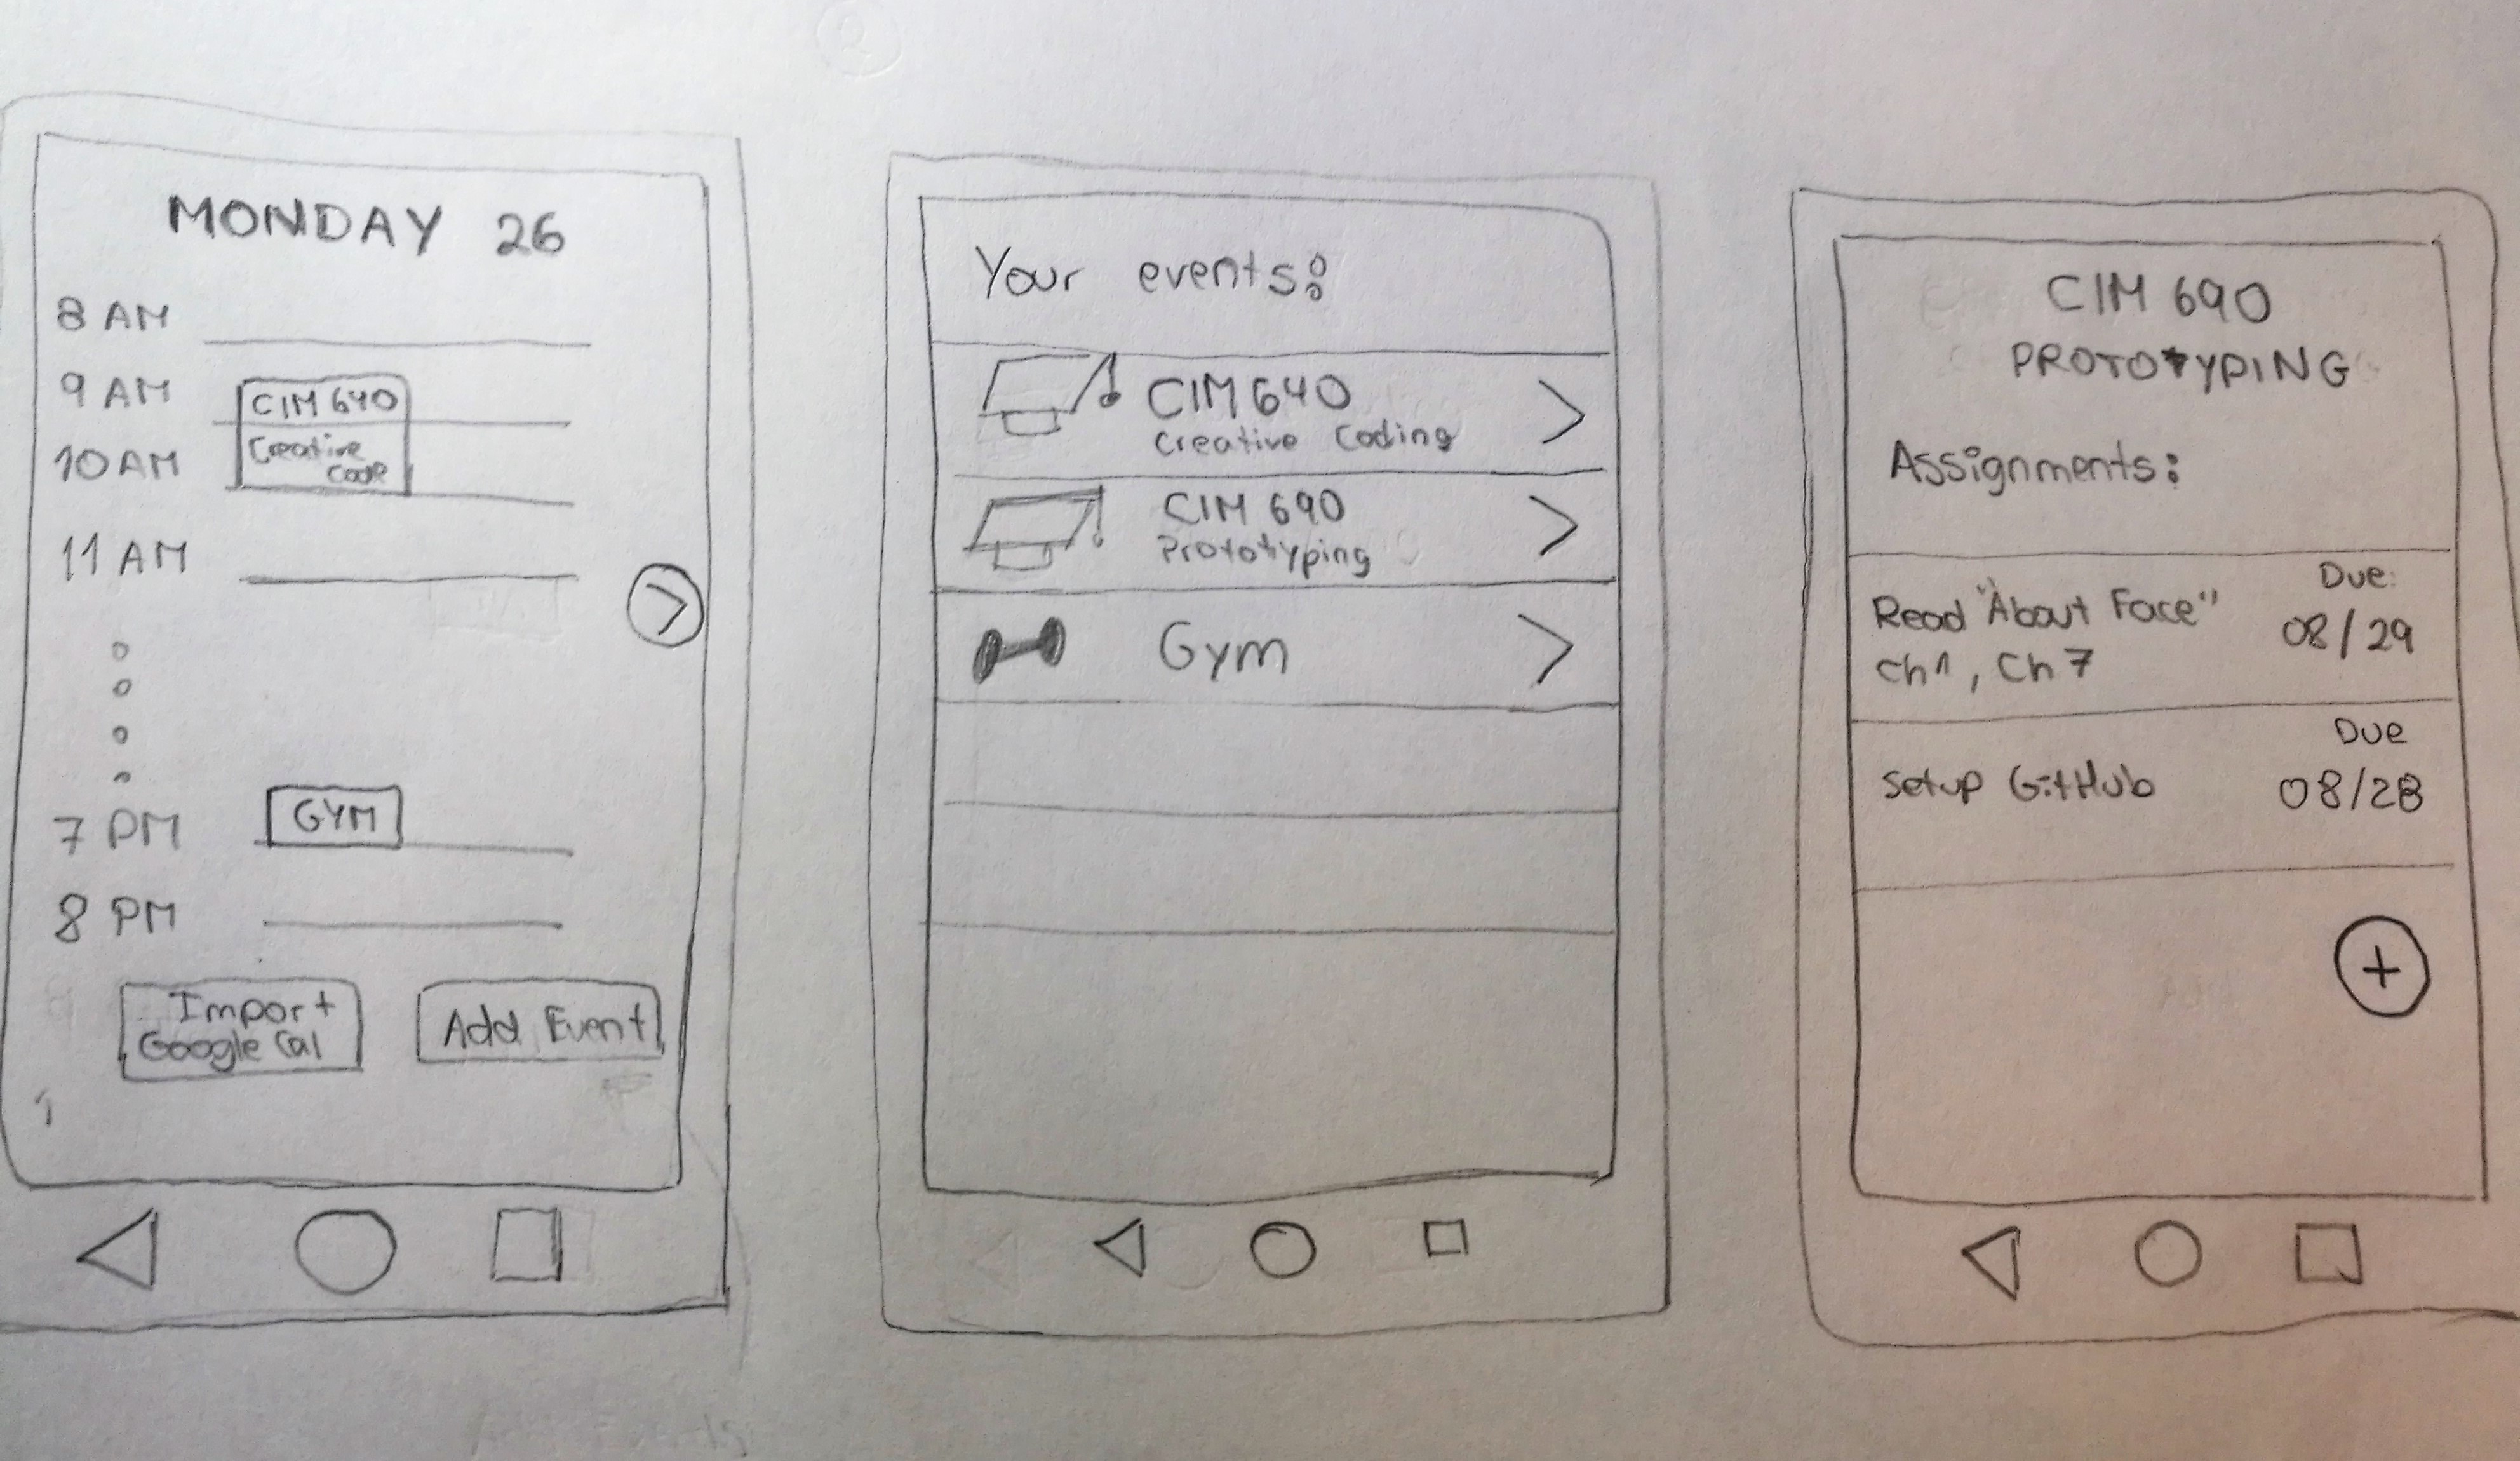 MONDAY 26
8 AM
9 AM
CIM 640
10 AM
Creative
Code
11 AM
7 PM
GYM
8 PM
Import
Google Cal
Add Event
Your events:
CIM 640
Creative Coding
CIM 690
Prototyping
Gym
CIM 690
PROTOTYPING
Assignments:
Read "About Face"
Ch1, Ch 7
Due:
08/29
Setup GitHub
Due
08/28